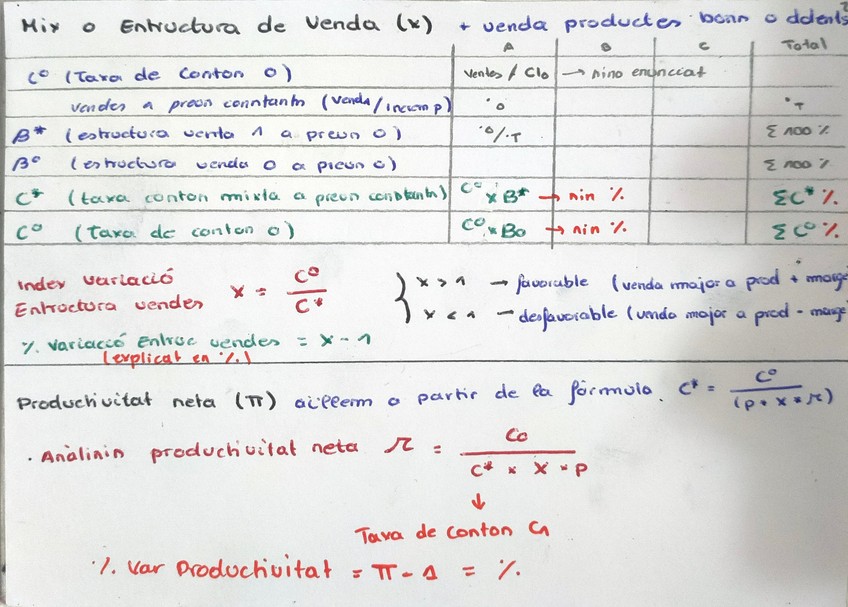 Mix o Estructura de Venda (x) + venda productes bons o dolents
A B C Total
C⁰ (Taxa de Costos 0) Ventes / C10 → sino enunciat
vendes a preus constants (venda/increm p) ⁰ T
B* (estructura venta 1 a preus 0) ⁰/.T Σ 100 %
B⁰ (estructura venda 0 a preus 0) Σ 100 %
C* (taxa costos mixta a preus constants) C⁰ x B* → sin % ΣC* %
C⁰ (Taxa de costos 0) C⁰ x B0 → sin % ΣC⁰ %
Index variació
Estructura vendes x = C⁰ / C*
x > 1 → favorable (venda major a prod + marge
x < 1 → desfavorable (venda major a prod - marge
% Variacció Estruc vendes = x - 1
(explicat en %)
Productivitat neta (π) aïllem a partir de la fórmula. C* = C⁰ / (p * x * π)
· Anàlisis productivitat neta π = C0 / C* x X * P
↓
Taxa de Costos C1
% Var Productivitat = π - 1 = %